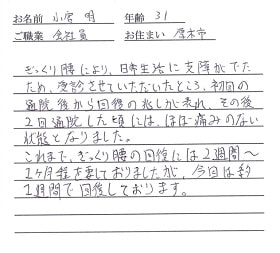 お名前 小宮 明 年齢 31
ご職業 会社員 お住まい 厚木市
ぎっくり腰により、日常生活に支障がでた
ため、受診させていただいたところ、初回の
通院後から回復の兆しが表れ、その後
2回通院した頃には、ほぼ痛みのない
状態となりました。
これまで、ぎっくり腰の回復には2週間〜
1ヶ月程を要しておりましたが、今回は約
1週間で回復しております。